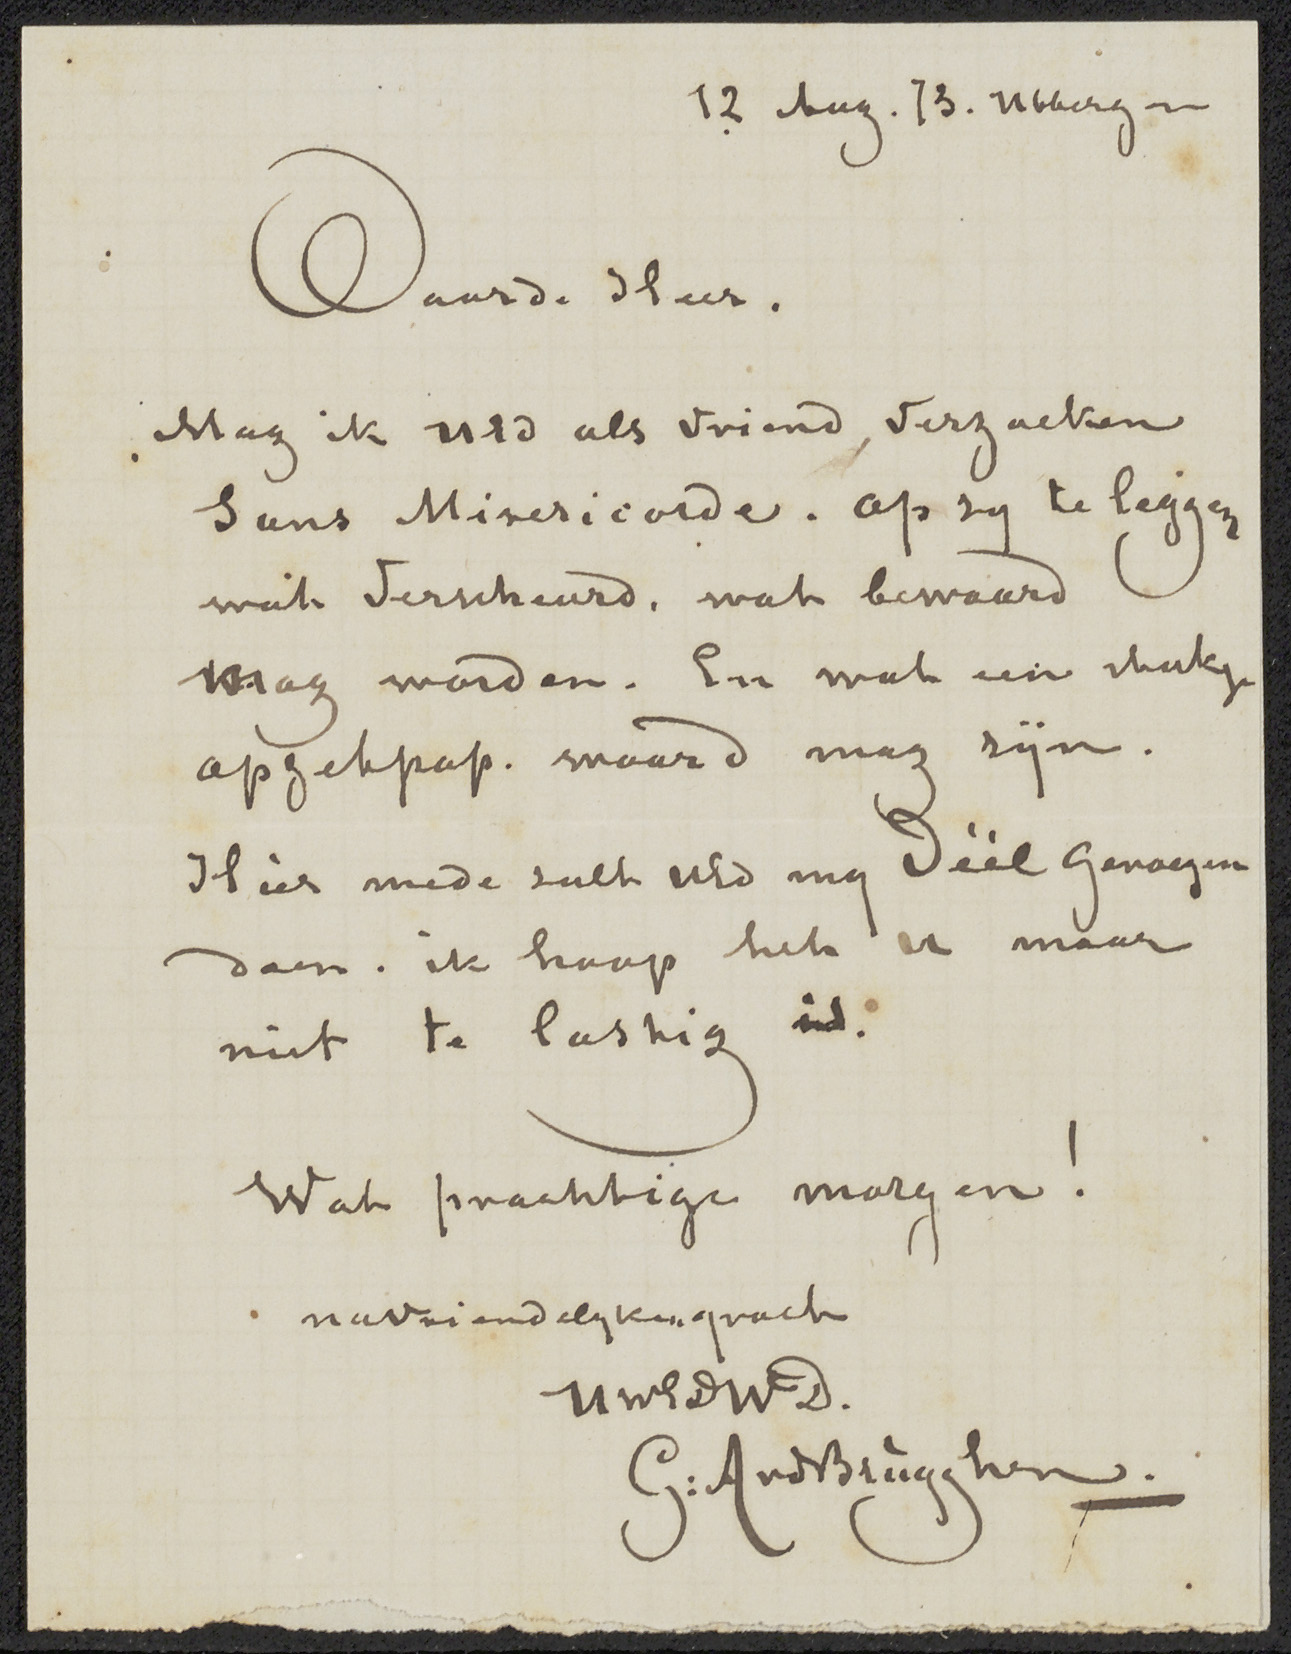 12 Aug. 73. Ubbergen
Waarde Heer.
Mag ik UEd als vriend, verzoeken
Sans Misericorde. op zy te leggen
wat verscheurd. wat bewaard
mag worden. En wat een
opgekpap. waard mag zijn.
Hier mede zult UEd my Veel Genoegen
doen. ik hoop het U maar
niet te lastig is.
Wat prachtige morgen!
na vriendelyken groet
UwEdWD.
G: AvdBrugghen.